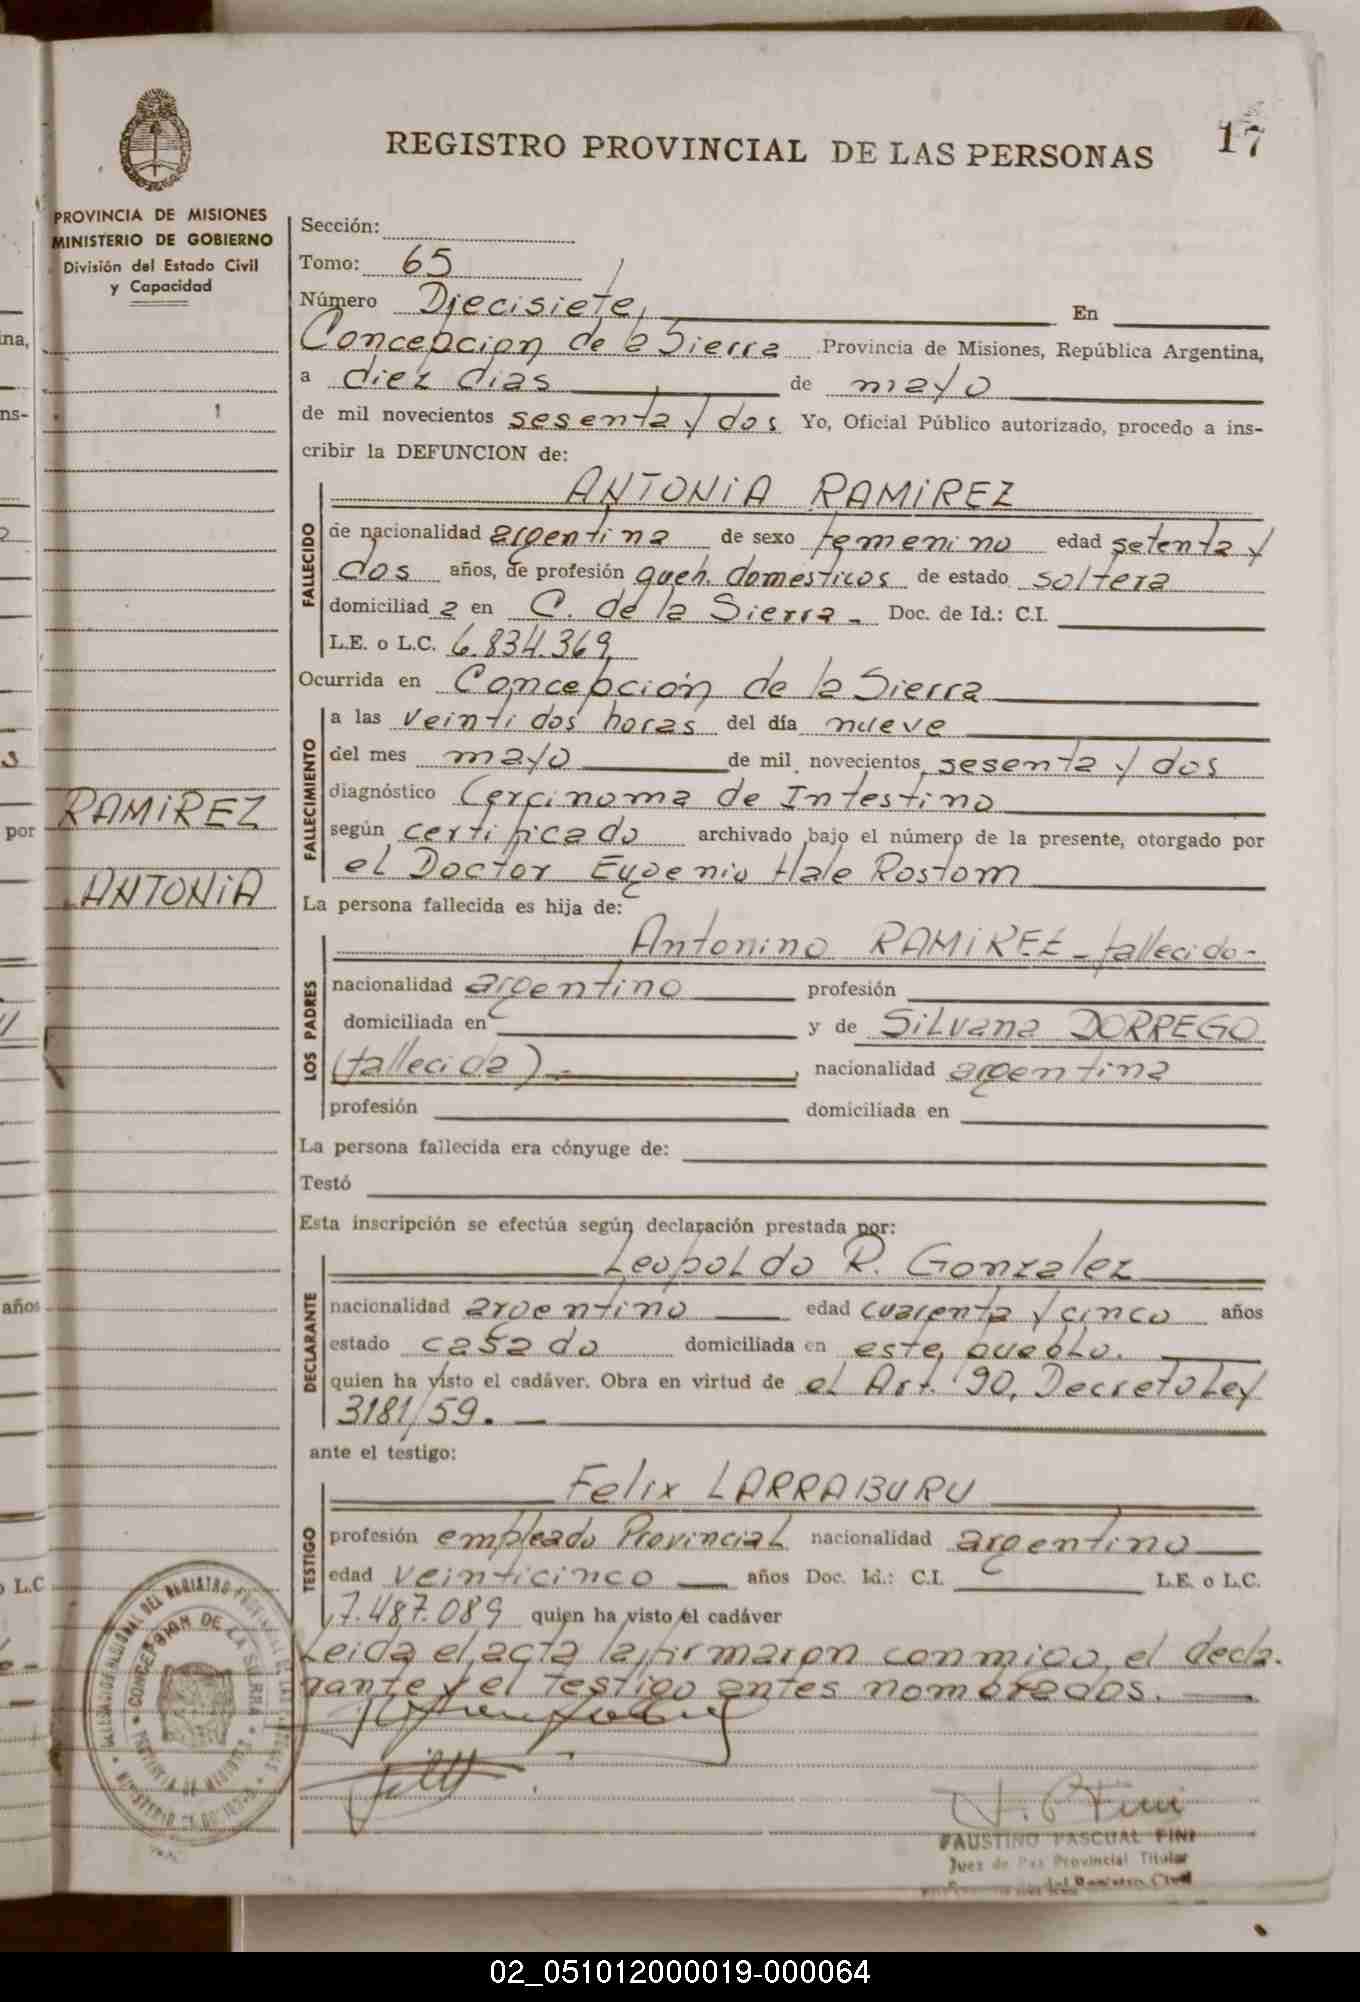 17
REGISTRO PROVINCIAL DE LAS PERSONAS
PROVINCIA DE MISIONES
MINISTERIO DE GOBIERNO
División del Estado Civil
y Capacidad
RAMIREZ
ANTONIA
Sección:
Tomo: 65
Número Diecisiete, En
Concepcion de la Sierra Provincia de Misiones, República Argentina,
a diez dias de mayo
de mil novecientos sesenta y dos Yo, Oficial Público autorizado, procedo a ins-
cribir la DEFUNCION de:
FALLECIDO
ANTONIA RAMIREZ
de nacionalidad argentina de sexo femenino edad setenta y
dos años, de profesión queh. domesticos de estado soltera
domiciliad a en C. de la Sierra - Doc. de Id.: C.I.
L.E. o L.C. 6.834.369
Ocurrida en Concepción de la Sierra
FALLECIMIENTO
a las veintidos horas del día nueve
del mes mayo de mil novecientos sesenta y dos
diagnóstico Cercinoma de Intestino
según certificado archivado bajo el número de la presente, otorgado por
el Doctor Eugenio Hale Rostom
La persona fallecida es hija de:
LOS PADRES
Antonino RAMIREZ - fallecido -
nacionalidad argentino profesión
domiciliada en y de SiLvana DORREGO
(fallecida) .- nacionalidad argentina
profesión domiciliada en
La persona fallecida era cónyuge de:
Testó
Esta inscripción se efectúa según declaración prestada por:
DECLARANTE
Leopoldo R. Gonzalez
nacionalidad argentino edad cuarenta y cinco años
estado casado domiciliada en este pueblo.
quien ha visto el cadáver. Obra en virtud de el Art. 90, Decreto Ley
3181/59. -
ante el testigo:
TESTIGO
Felix LARRABURU
profesión empleado Provincial nacionalidad argentino
edad veinticinco años Doc. Id.: C.I. L.E. o L.C.
7.487.089 quien ha visto el cadáver
Leida el acta la firmaron conmigo, el decla-
rante y el testigo antes nombrados.
CONCEPCION DE LA SIERRA
FAUSTINO PASCUAL FINI
Juez de Paz Provincial Titular
del Registro Civil
na,
ns-
por
años
o L.C
02_051012000019-000064